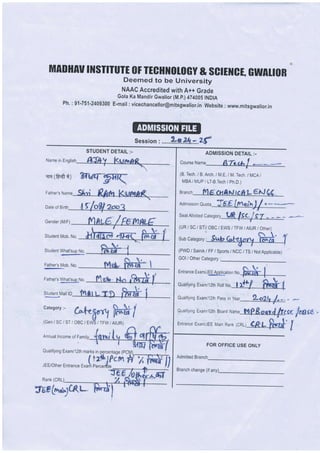 MADHAV INSTITUTE OF TECHNOLOGY & SCIENCE, GWALIOR
Deemed to be University
NAAC Accredited with A++ Grade
Gola Ka Mandir Gwalior (M.P.) 474005 INDIA
Ph. : 91-751-2409300 E-mail : vicechancellor@mitsgwalior.in Website : www.mitsgwalior.in
ADMISSION FILE
Session : 2024-25
STUDENT DETAIL :-
Name in English AJAY KUMAR
नाम (हिन्दी में) अजय कुमार
Father's Name Shri RAM KUMAR
Date of Birth 15/08/2003
Gender (M/F) MALE/FEMALE
Student Mob. No. मोबाइल नम्बर लिखें
Student What'sup No. लिखें
Father's Mob. No. Mob. लिखें
Father's What'sup No. Mob No लिखें
Student Mail ID MAIL ID लिखें
Category :- Category लिखें
(Gen / SC / ST / OBC / EWS / TFW / AIUR)
Annual Income of Family family की वार्षिक
आय लिखें
Qualifying Exam/12th marks in percentage (PCM)
(12th PCM में % लिखें)
JEE/Other Entrance Exam Percentile JEE/other का
% लिखें
Rank (CRL)
JEE(main) CRL लिखें
ADMISSION DETAIL :-
Course Name B.Tech/
(B. Tech. / B. Arch. / M.E. / M. Tech. / MCA /
MBA / MUP / Ph.D.)
Branch MECHANICAL ENGG
Admission Quota JEE(Main)/
Seat Allotted Category UR/SC/ST
(UR / SC / ST/ OBC / EWS / TFW / AIUR / Other)
Sub Category Sub Category लिखें
(PWD / Sainik / FF / Sports / NCC / TS / Not Applicable)
GOI / Other Category
Entrance Exam/JEE Application No. लिखें
Qualifying Exam/12th Roll No. 12th लिखें
Qualifying Exam/12th Pass in Year 2024/
Qualifying Exam/12th Board Name MP Board/ICSE/CBSE
Entrance Exam/JEE Main Rank (CRL) CRL लिखें
FOR OFFICE USE ONLY
Admitted Branch
Branch change (if any)